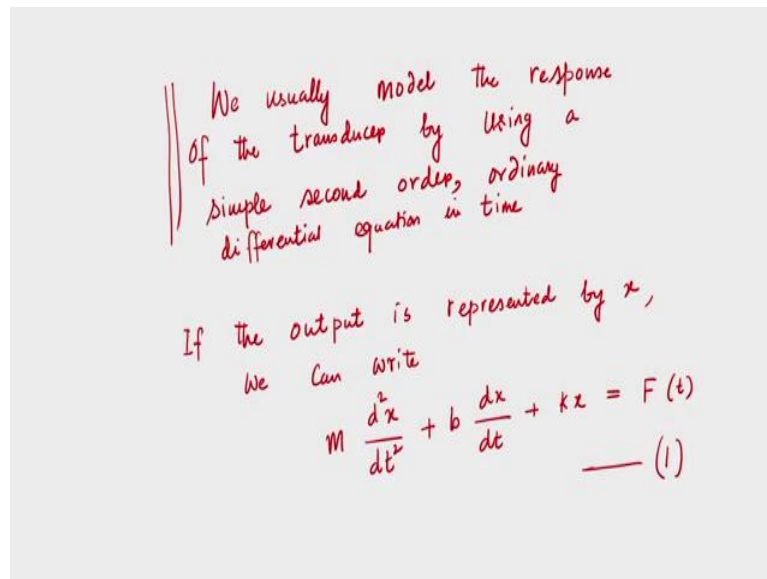 We usually model the response
of the transducer by using a
simple second order, ordinary
differential equation in time
If the output is represented by x,
we can write
m d²x/dt² + b dx/dt + kx = F(t)
(1)